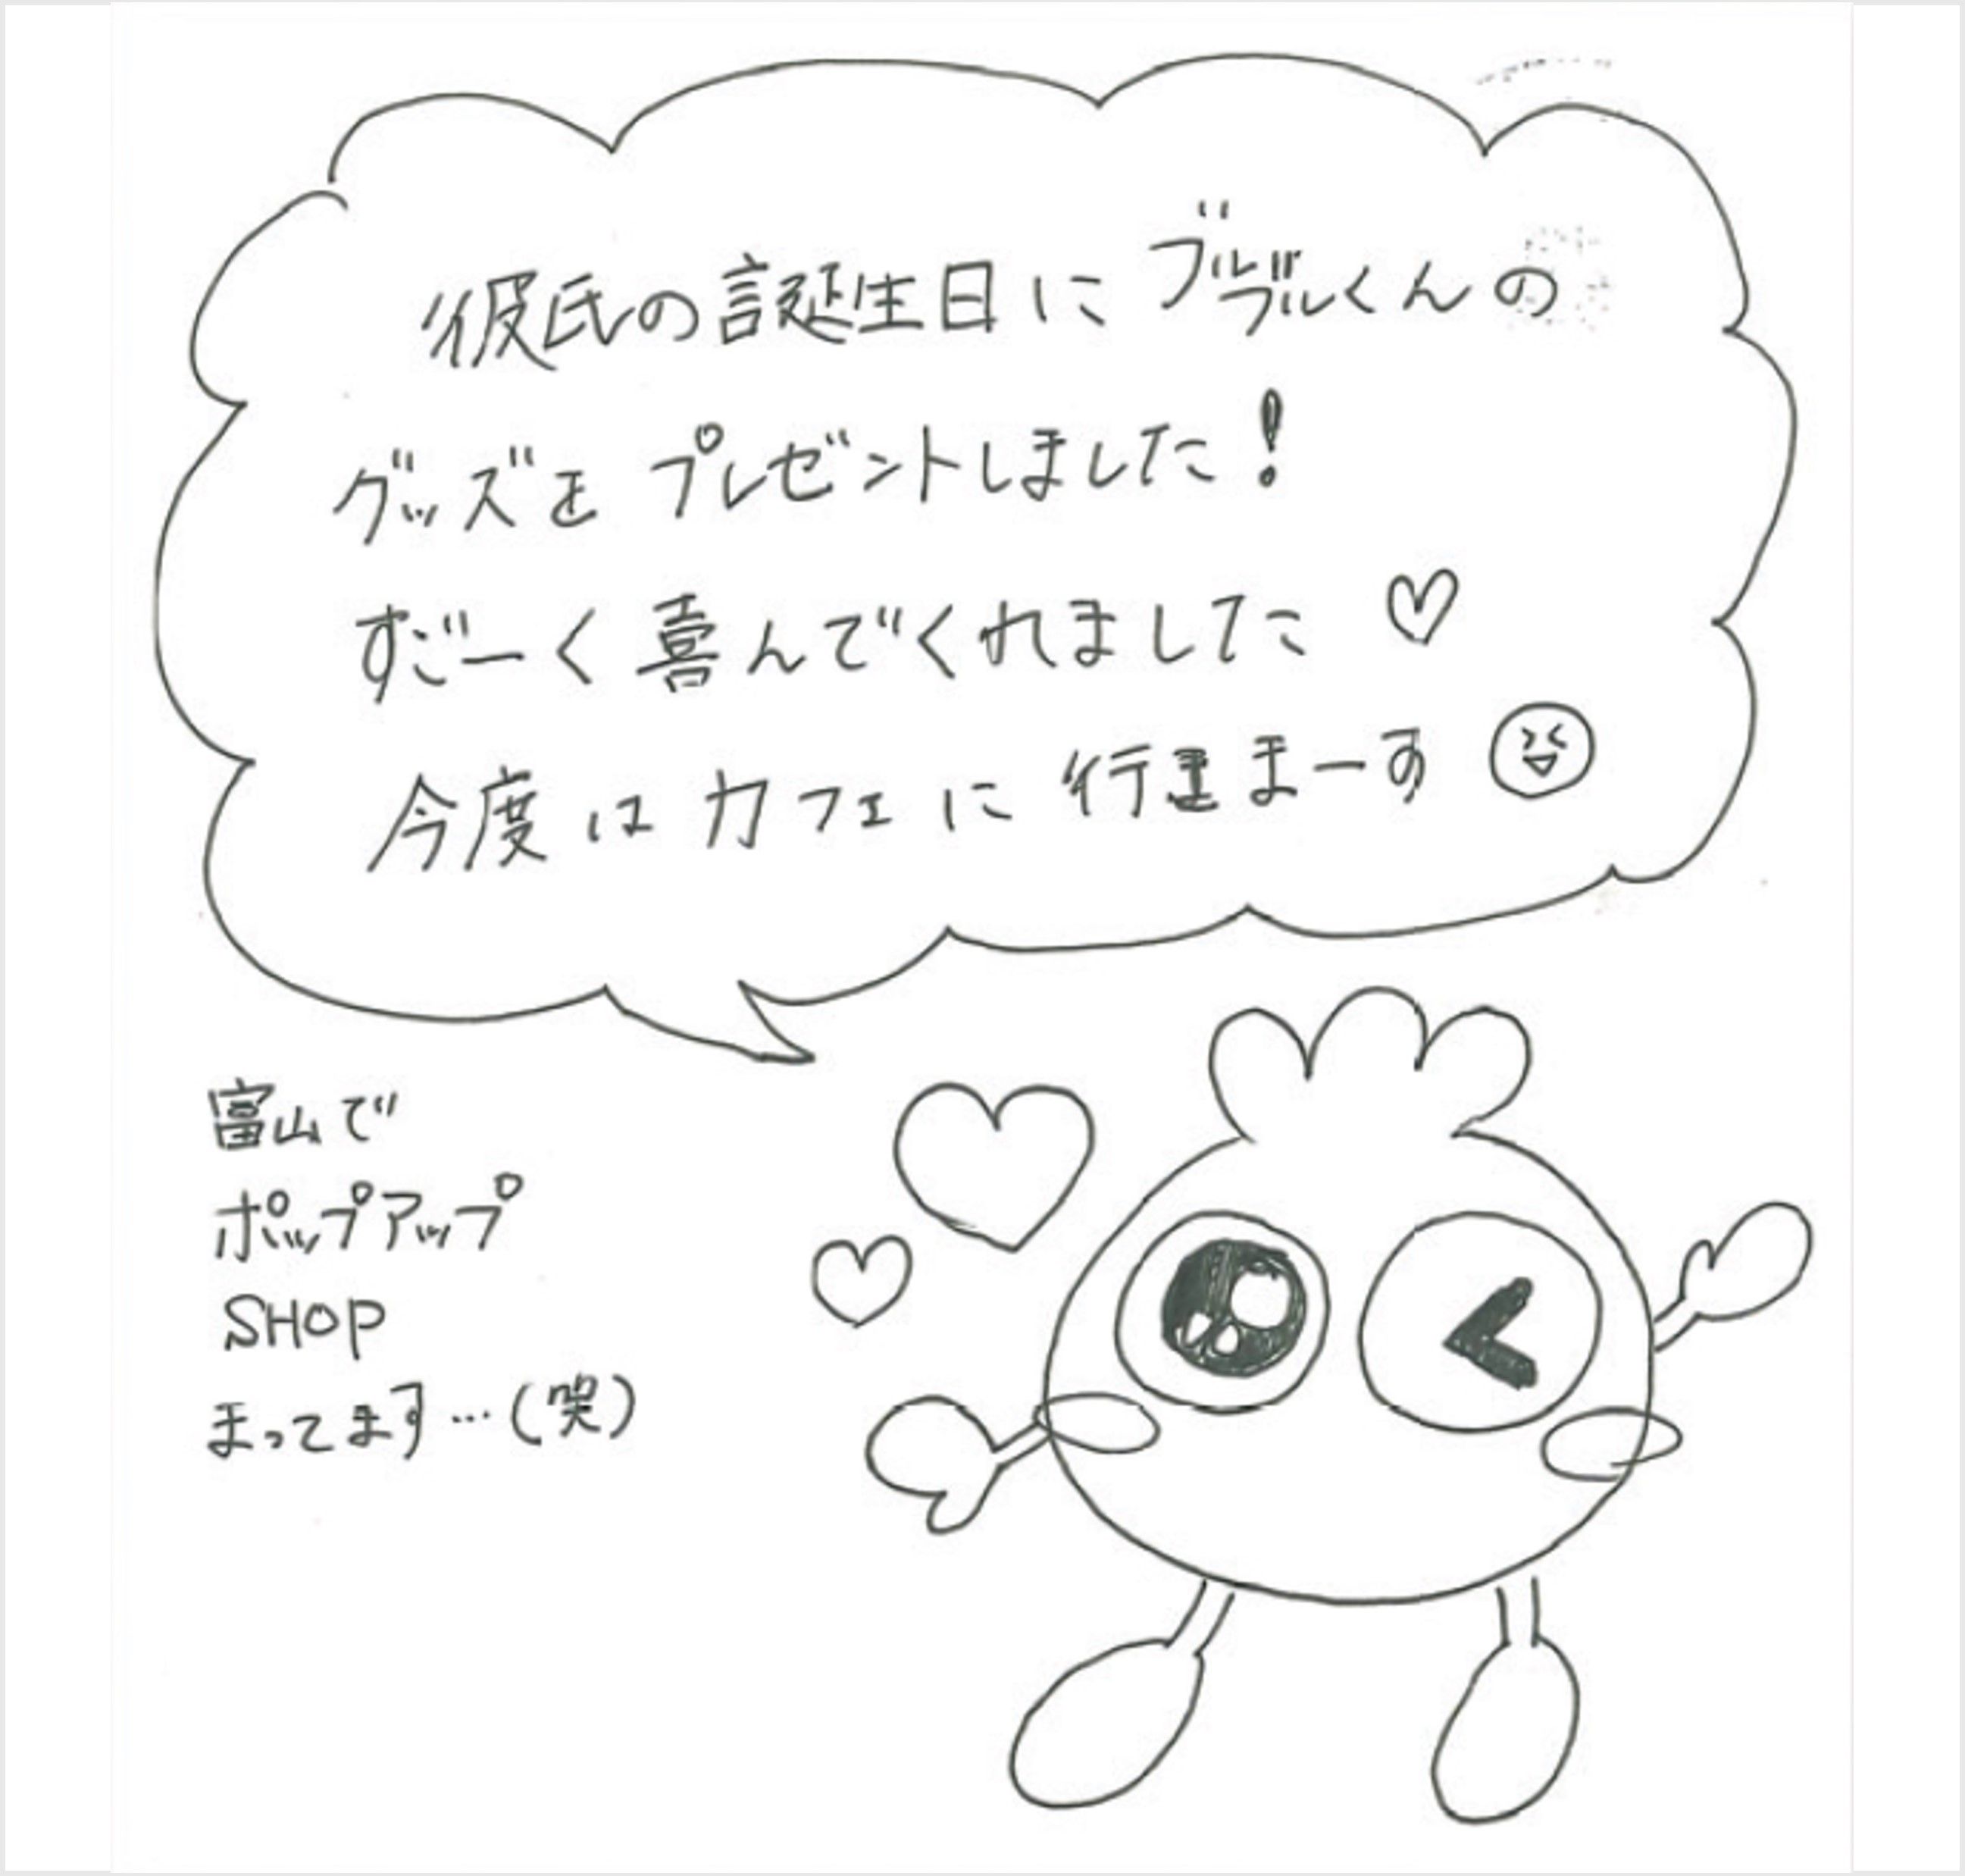 彼氏の誕生日にブルブルくんの
グッズをプレゼントしました!
すごーく喜んでくれました♡
今度はカフェに行きまーす
富山で
ポップアップ
SHOP
まってます…(笑)